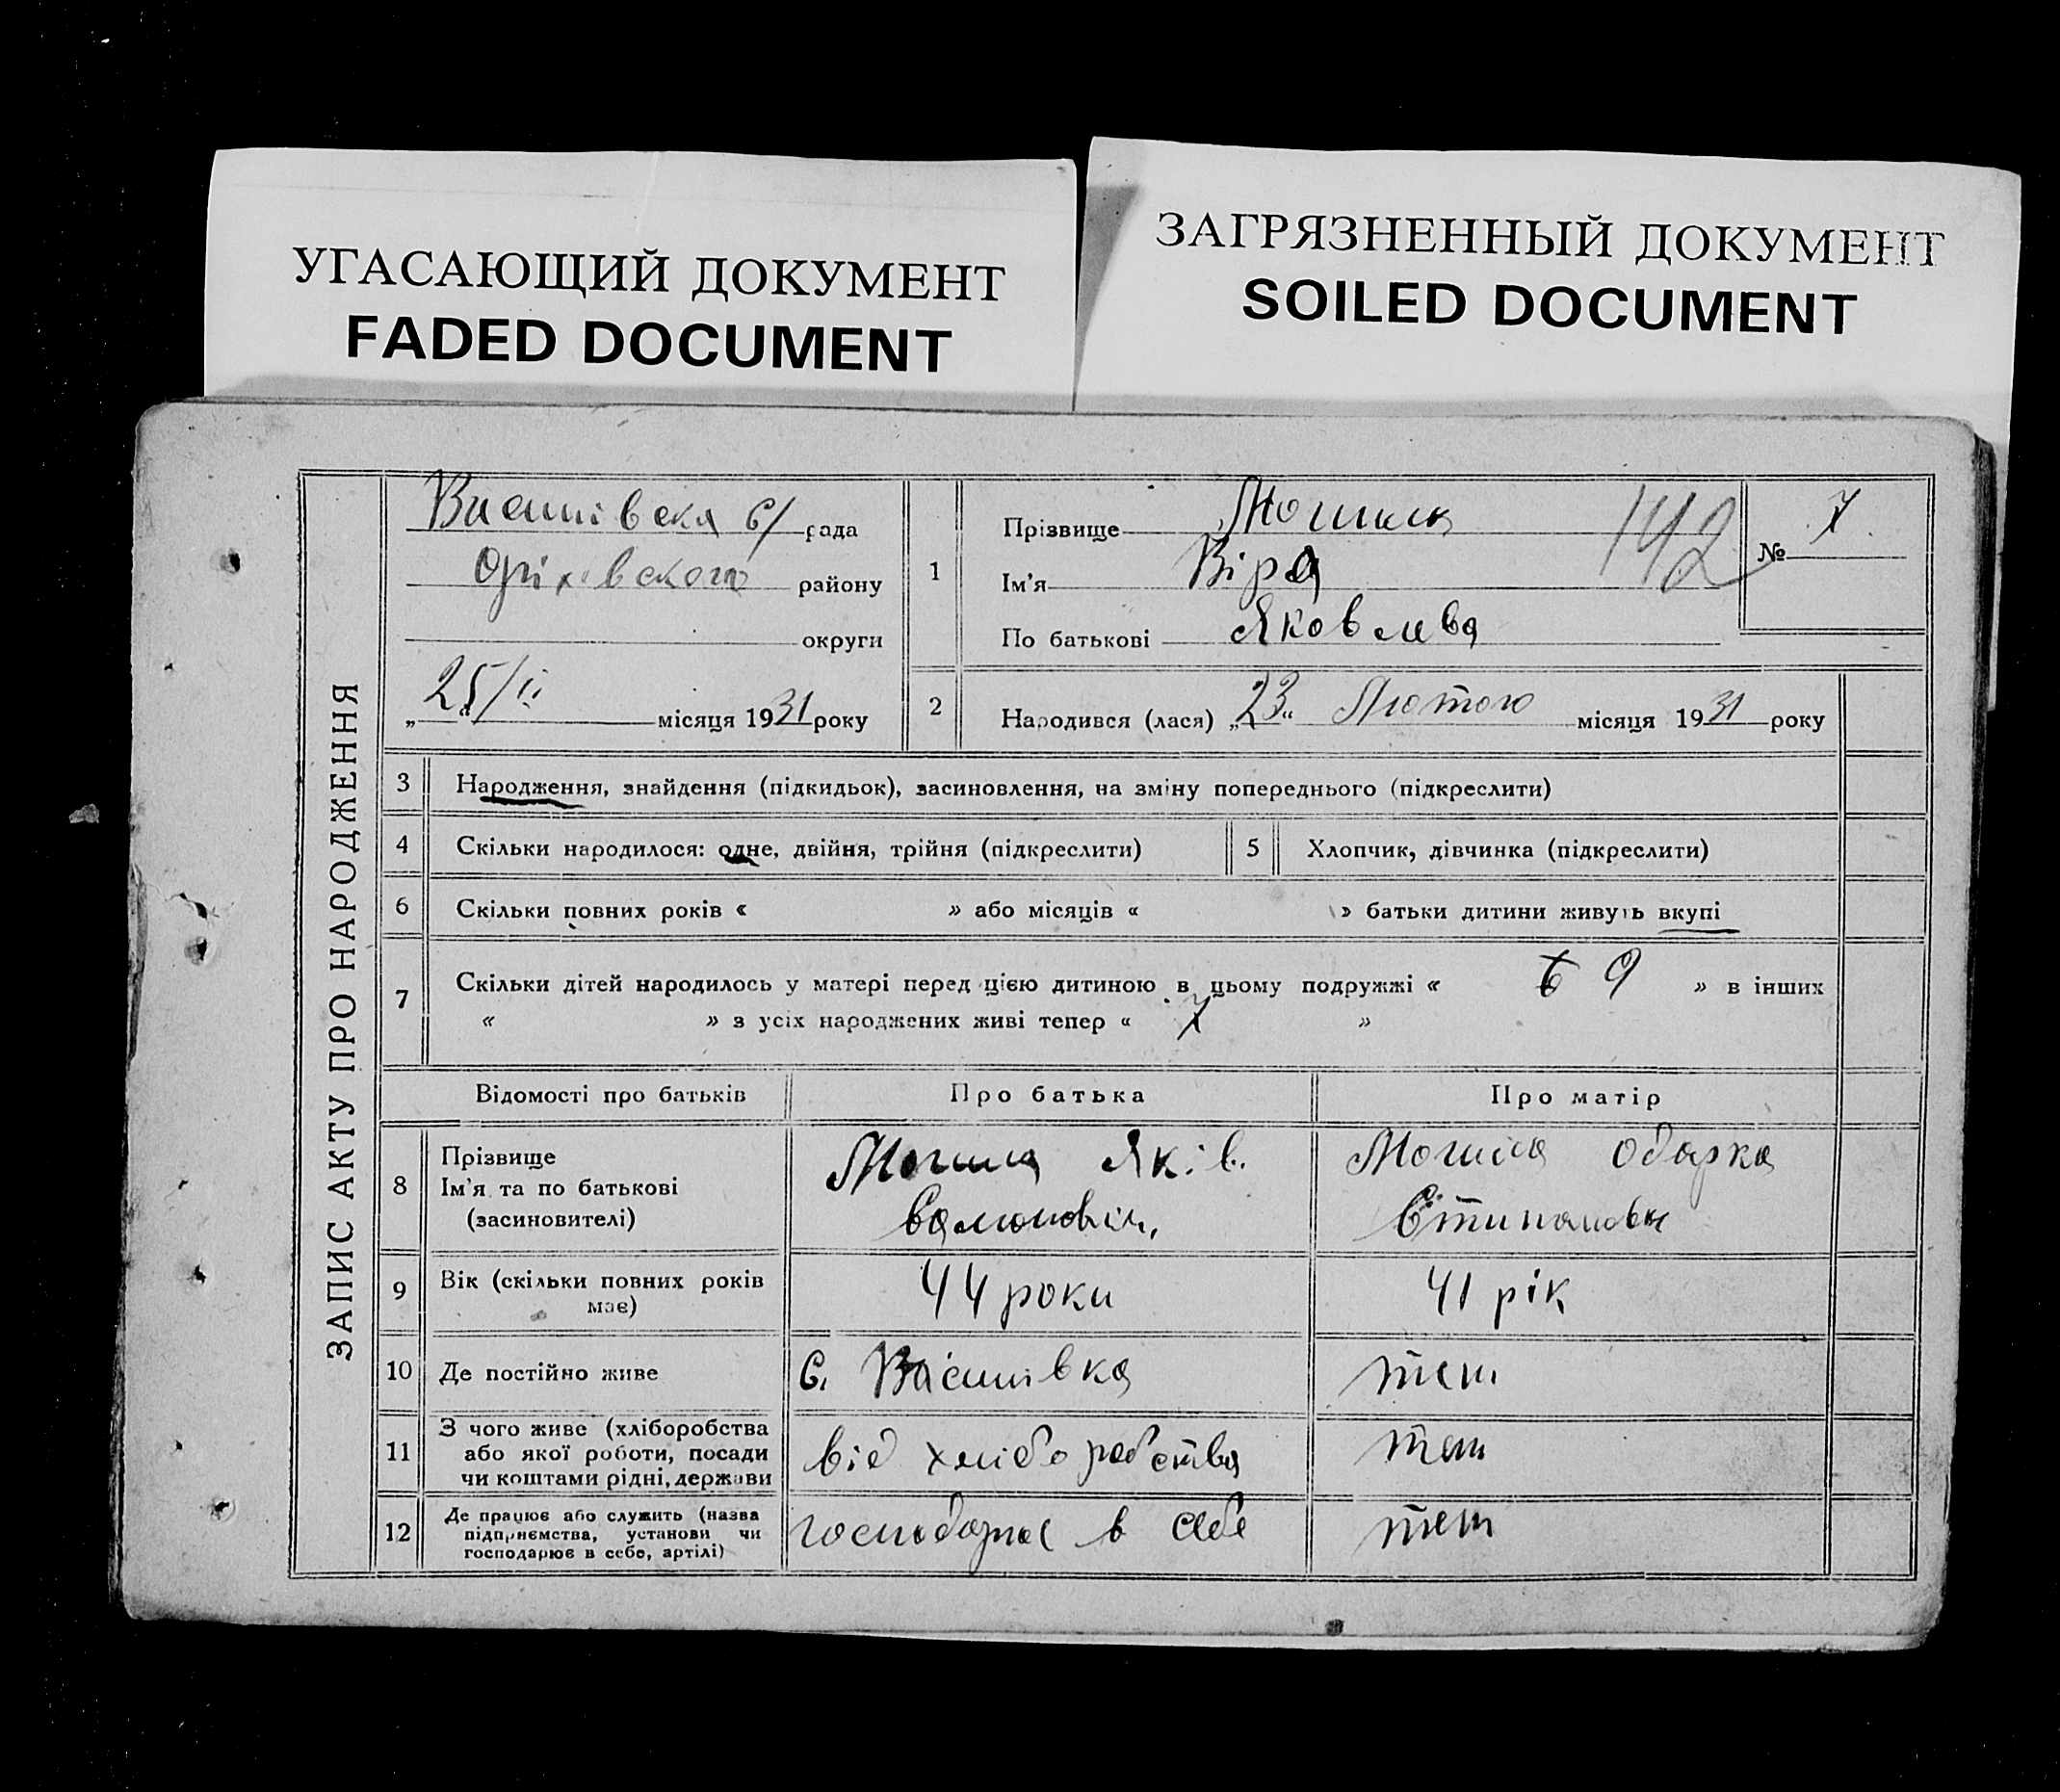 УГАСАЮЩИЙ ДОКУМЕНТ
FADED DOCUMENT
ЗАГРЯЗНЕННЫЙ ДОКУМЕНТ
SOILED DOCUMENT
ЗАПИС АКТУ ПРО НАРОДЖЕННЯ
с/рада
Оріховского району
округи
„25/II“ місяця 1931 року
1
Прізвище
142
№ 7
Ім'я Віра
По батькові Яковлева
2 Народився (лася) „23“ Лютого місяця 1931 року
3 Народження, знайдення (підкидьок), засиновлення, на зміну попереднього (підкреслити)
4 Скільки народилося: одне, двійня, трійня (підкреслити) 5 Хлопчик, дівчинка (підкреслити)
6 Скільки повних років « » або місяців « » батьки дитини живуть вкупі
7 Скільки дітей народилось у матері перед цією дитиною в цьому подружжі « 9 » в інших
« » з усіх народжених живі тепер « 7 »
Відомості про батьків Про батька Про матір
8 Прізвище
Ім'я та по батькові
(засиновителі)
Могила Яків
Могила Одарка
9 Вік (скільки повних років
має)
44 роки
41 рік
10 Де постійно живе
с.
теж
11 З чого живе (хліборобства
або якої роботи, посади
чи коштами рідні, держави
від хлібо робства
теж
12 Де працює або служить (назва
підприємства, установи чи
господарює в себе, артілі)
в себе
теж